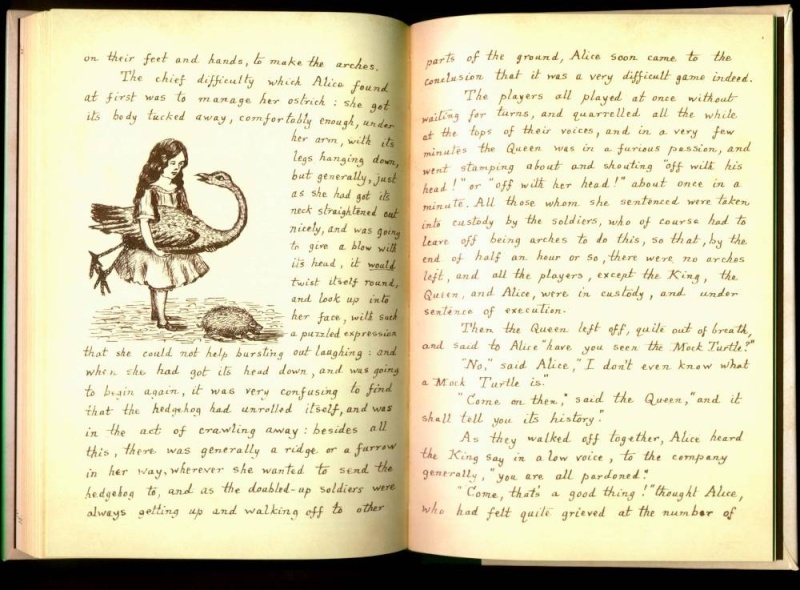 on their feet and hands, to make the arches.
The chief difficulty which Alice found
at first was to manage her ostrich: she got
its body tucked away, comfortably enough, under
her arm, with its
legs hanging down,
but generally, just
as she had got its
neck straightened out
nicely, and was going
to give a blow with
its head, it would
twist itself round,
and look up into
her face, with such
a puzzled expression
that she could not help bursting out laughing: and
when she had got its head down, and was going
to begin again, it was very confusing to find
that the hedgehog had unrolled itself, and was
in the act of crawling away: besides all
this, there was generally a ridge or a furrow
in her way, wherever she wanted to send the
hedgehog to, and as the doubled-up soldiers were
always getting up and walking off to other
parts of the ground, Alice soon came to the
conclusion that it was a very difficult game indeed.
The players all played at once without
waiting for turns, and quarrelled all the while
at the tops of their voices, and in a very few
minutes the Queen was in a furious passion, and
went stamping about and shouting "off with his
head!" or "off with her head!" about once in a
minute. All those whom she sentenced were taken
into custody by the soldiers, who of course had to
leave off being arches to do this, so that, by the
end of half an hour or so, there were no arches
left, and all the players, except the King, the
Queen, and Alice, were in custody, and under
sentence of execution.
Then the Queen left off, quite out of breath,
and said to Alice "have you seen the Mock Turtle?"
"No," said Alice, "I don't even know what
a Mock Turtle is."
"Come on then," said the Queen, "and it
shall tell you its history."
As they walked off together, Alice heard
the King say in a low voice, to the company
generally, "you are all pardoned."
"Come, that's a good thing!" thought Alice,
who had felt quite grieved at the number of